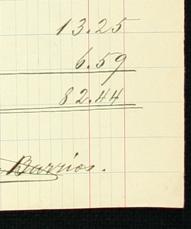 13.25
6.59
82.44
Barrios.